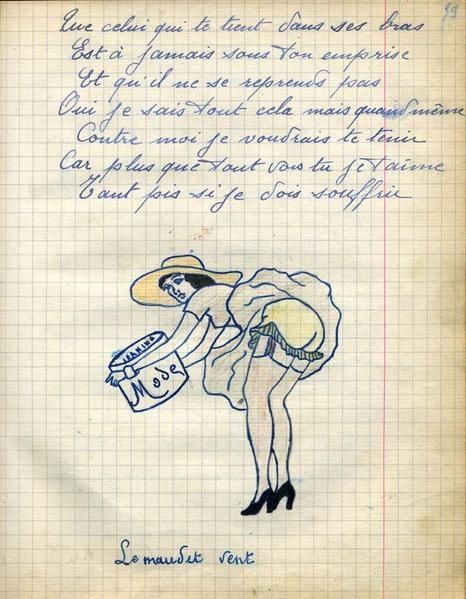 99
Que celui qui te tient dans ses bras
Est à jamais sous ton emprise
Et qu'il ne se reprends pas
Oui je sais tout cela mais quand même
Contre moi je voudrais te tenir
Car plus que tout vois tu je t'aime
Tant pis si je dois souffrir
Mode
Le maudit vent